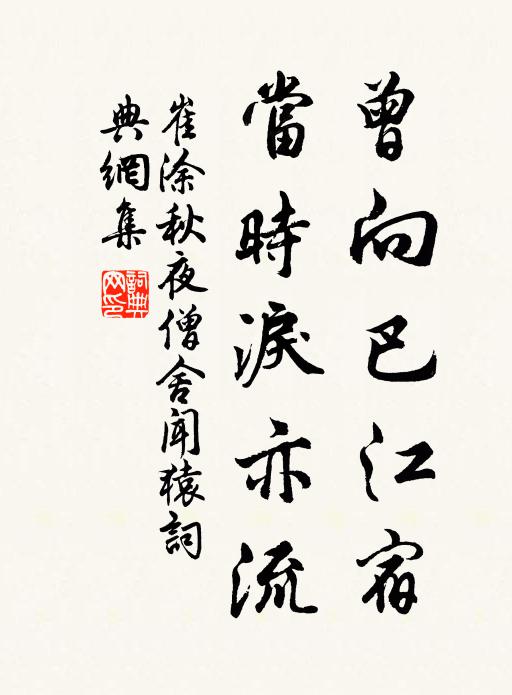 曾向巴江宿
當時淚亦流
崔涂秋夜僧舍聞猿詞
典網集
詞典網印